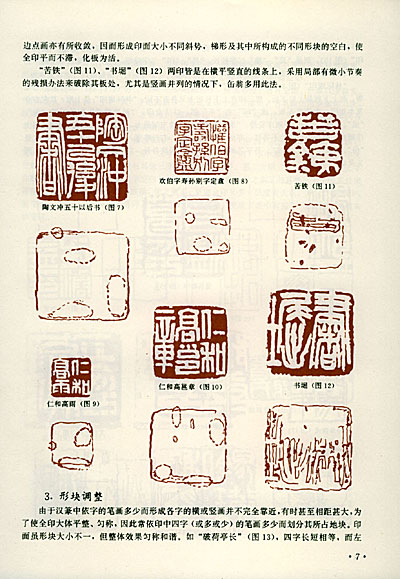 边点画亦有所收敛，因而形成印面大小不同斜势，梯形及其中所构成的不同形块的空白，使
全印平而不滞，化板为活。
“苦铁”（图11）、“书堀”（图12）两印皆是在横平竖直的线条上，采用局部有微小节奏
的残损办法来破除其板处，尤其是竖画并列的情况下，缶翁多用此法。
陶文冲五十以后书（图7）
欢伯字寿孙别字定盦（图8）
苦铁（图11）
仁和高雨（图9）
仁和高邕章（图10）
书堀（图12）
3. 形块调整
由于汉篆中依字的笔画多少而形成各字的横或竖画并不完全靠近，有时甚至相距甚大，为
了使全印大体平整、匀称，因此常依印中四字（或多或少）的笔画多少而划分其所占地块。印
面虽形块大小不一，但整体效果匀称和谐。如“破荷亭长”（图13），四字长短相等，而左
·7·